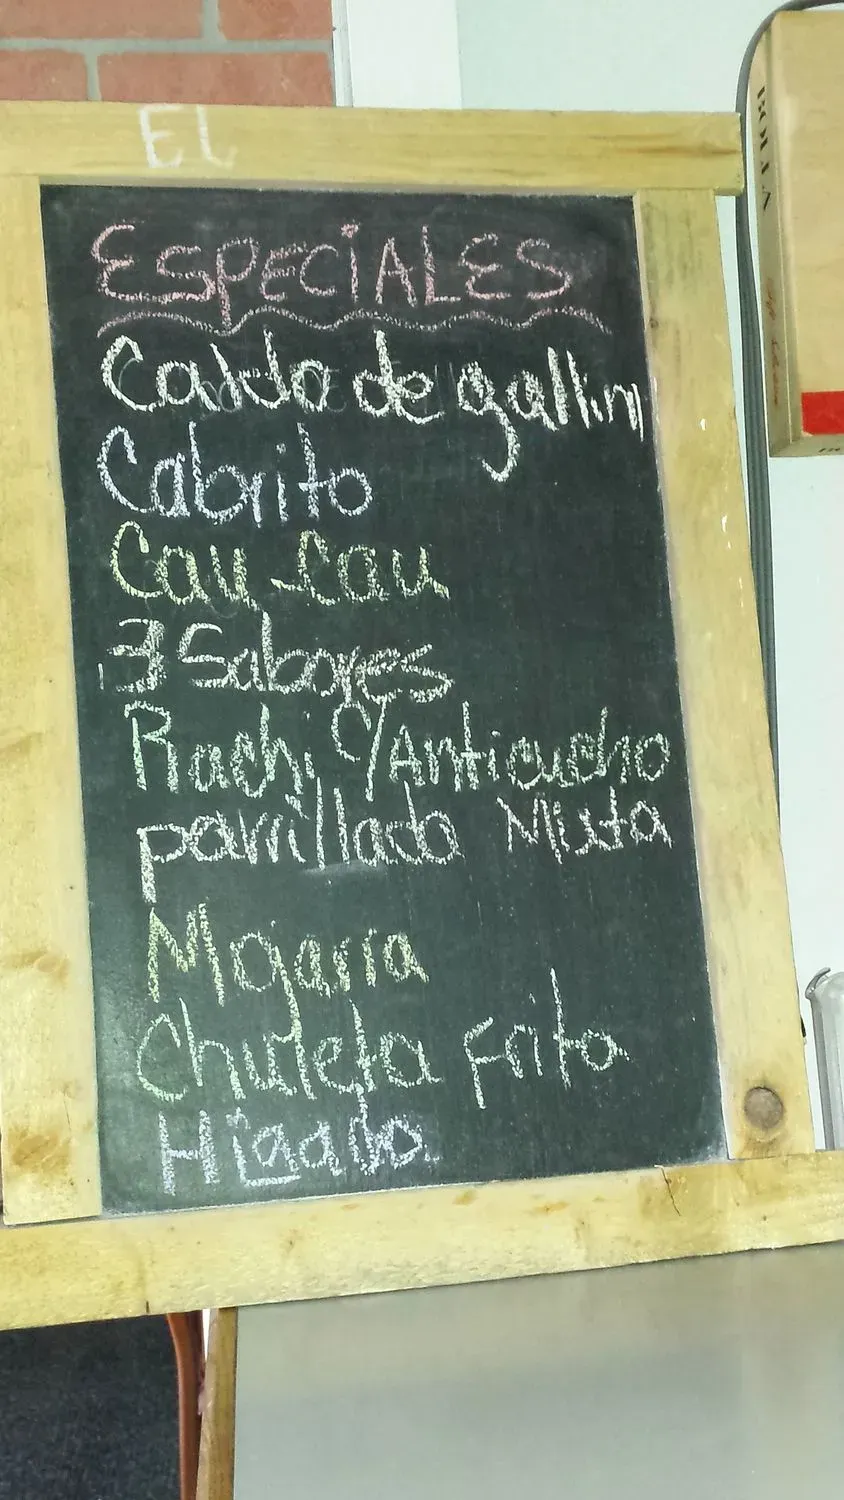 EL
ESPECIALES
Caldo de gallina
Cabrito
Cau-cau
3 Sabores
Rachi c/Anticucho
parrillada Mixta
Mojarra
Chuleta Frita
Higado